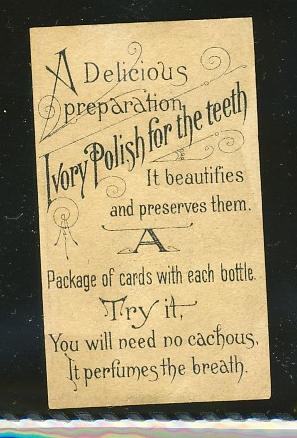 A Delicious
preparation
Ivory Polish for the teeth
It beautifies
and preserves them.
A
Package of cards with each bottle.
Try it,
You will need no cachous,
It perfumes the breath.